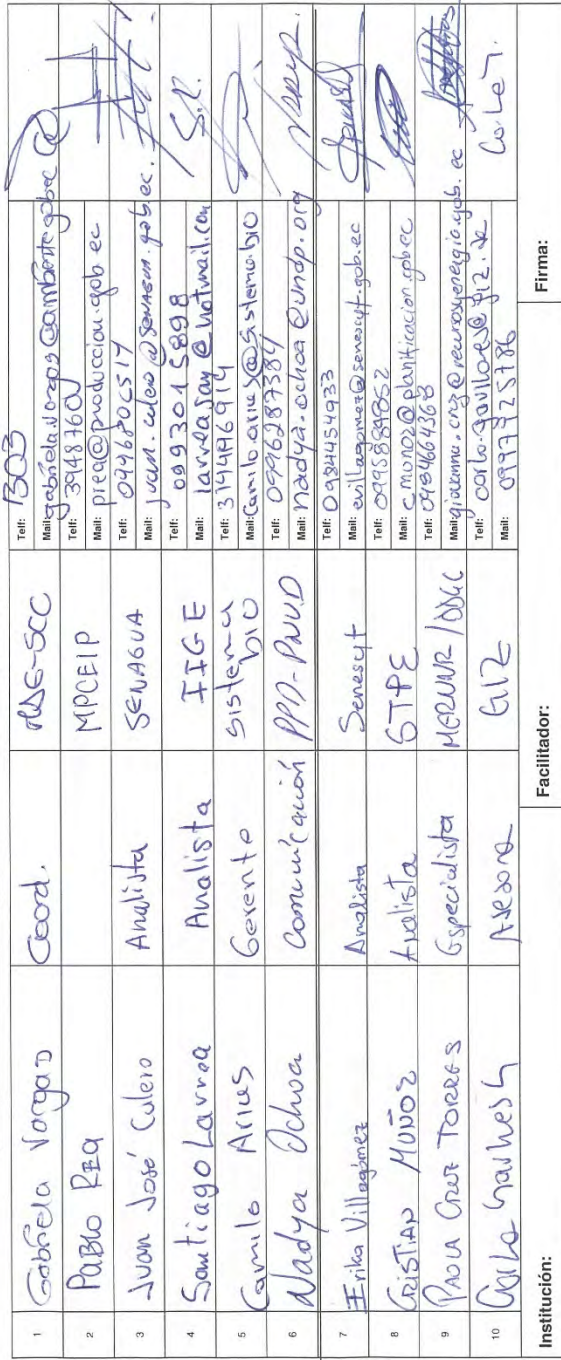 1 Gabriela Vargas Coord. MAE-SCC Telf: 1303
Mail: gabriela.vargas@ambiente.gob.ec
2 PABLO REA MPCEIP Telf: 3948760
Mail: prea@produccion.gob.ec
3 Juan José Culero Analista SENAGUA Telf:
Mail: @senagua.gob.ec.
4 Santiago Larrea Analista IIGE Telf: 0993015898
Mail: larreasay@hotmail.com S.L.
5 Camilo Arias Gerente Sistema bio Telf:
Mail: Camilo.arias@sistema.bio
6 Nadya Ochoa Comunicación PPD-PNUD Telf: 0996287384
Mail: nadya.ochoa@undp.org
7 Erika Villagómez Analista Senescyt Telf: 0984454933
Mail: evillagomez@senescyt.gob.ec
8 CRISTIAN MUÑOZ Analista STPE Telf:
Mail: cmunoz@planificacion.gob.ec
9 PAOLA CRUZ TORRES Especialista MERNNR Telf: 0984664368
Mail:
10 Analista GIZ Telf:
Mail: 0997725786
Institución: Facilitador: Firma: